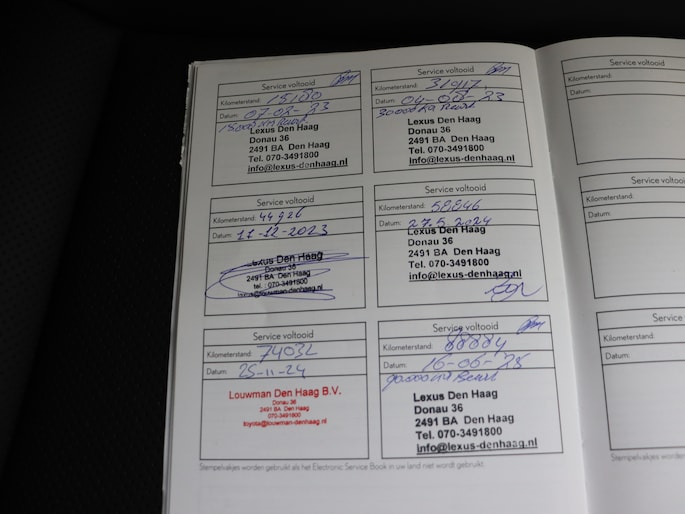 Service voltooid
Kilometerstand: 15180
Datum: 07-02-23
15000 km Beurt
Lexus Den Haag
Donau 36
2491 BA Den Haag
Tel. 070-3491800
info@lexus-denhaag.nl
Service voltooid
Kilometerstand: 31917
Datum: 04-08-23
30000 km Beurt
Lexus Den Haag
Donau 36
2491 BA Den Haag
Tel. 070-3491800
info@lexus-denhaag.nl
Service voltooid
Kilometerstand: 44926
Datum: 11-12-2023
Lexus Den Haag
Donau 36
2491 BA Den Haag
tel. : 070-3491800
Service voltooid
Kilometerstand: 58846
Datum: 27.5.2024
Lexus Den Haag
Donau 36
2491 BA Den Haag
Tel. 070-3491800
info@lexus-denhaag.nl
Service voltooid
Kilometerstand: 74032
Datum: 25-11-24
Louwman Den Haag B.V.
Donau 36
2491 BA Den Haag
070-3491800
toyota@louwman-denhaag.nl
Service voltooid
Kilometerstand: 88884
Datum: 16-06-25
90.000 km Beurt
Lexus Den Haag
Donau 36
2491 BA Den Haag
Tel. 070-3491800
info@lexus-denhaag.nl
Stempelvakjes worden gebruikt als het Electronic Service Book in uw land niet wordt gebruikt.
Service voltooid
Kilometerstand:
Datum:
Service voltooid
Kilometerstand:
Datum:
Service
Kilometerstand:
Datum:
Stempelvakjes worden